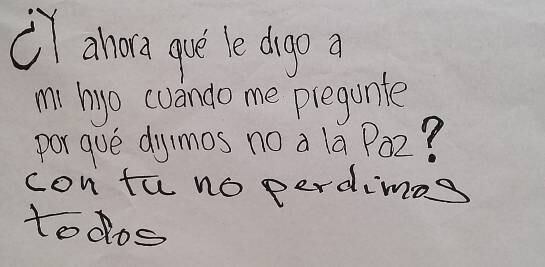 ¿Y ahora qué le digo a
mi hijo cuando me pregunte
por qué dijimos no a la Paz?
con tu no perdimos
todos